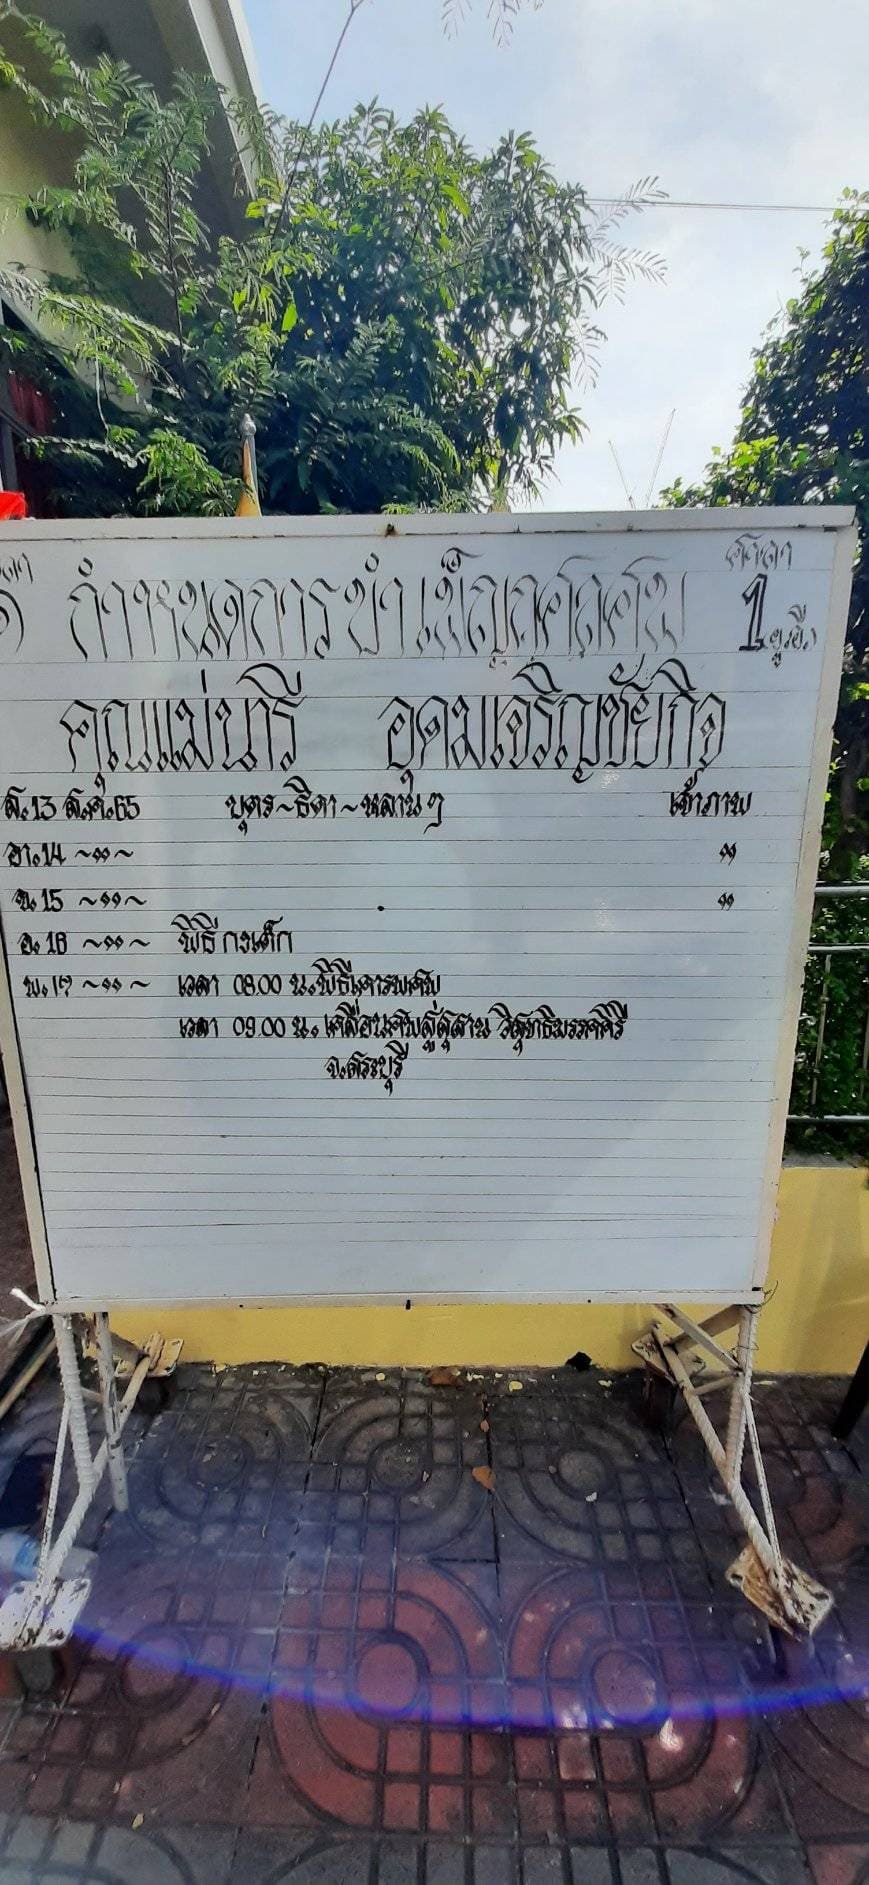 ศาลา
กำหนดการบำเพ็ญกุศลศพ
1
คุณแม่นารี อุดมเจริญชัยกิจ
ส.13 ส.ค.65 บุตร~ธิดา~หลานๆ เจ้าภาพ
อา.14 ~"~ "
จ.15 ~"~ "
อ.16 ~"~ พิธี กงเต็ก
พ.17 ~"~ เวลา 08.00 น. พิธีเคารพศพ
เวลา 09.00 น. เคลื่อนศพสู่สุสาน
จ.สระบุรี